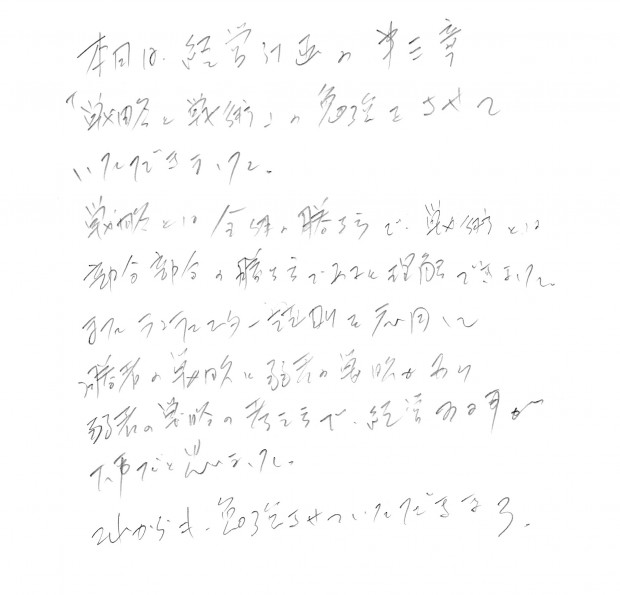 本日は、経営計画の第三章
「戦略と戦術」の勉強をさせて
いただきました。
戦略とは全体の勝ち方で、戦術とは
部分部分の勝ち方であると理解できました。
またランチェスター法則を応用して
勝者の戦略と弱者の戦略があり
弱者の戦略の考え方で、経営する事が
大事だと思いました。
これからも、勉強させていただきます。